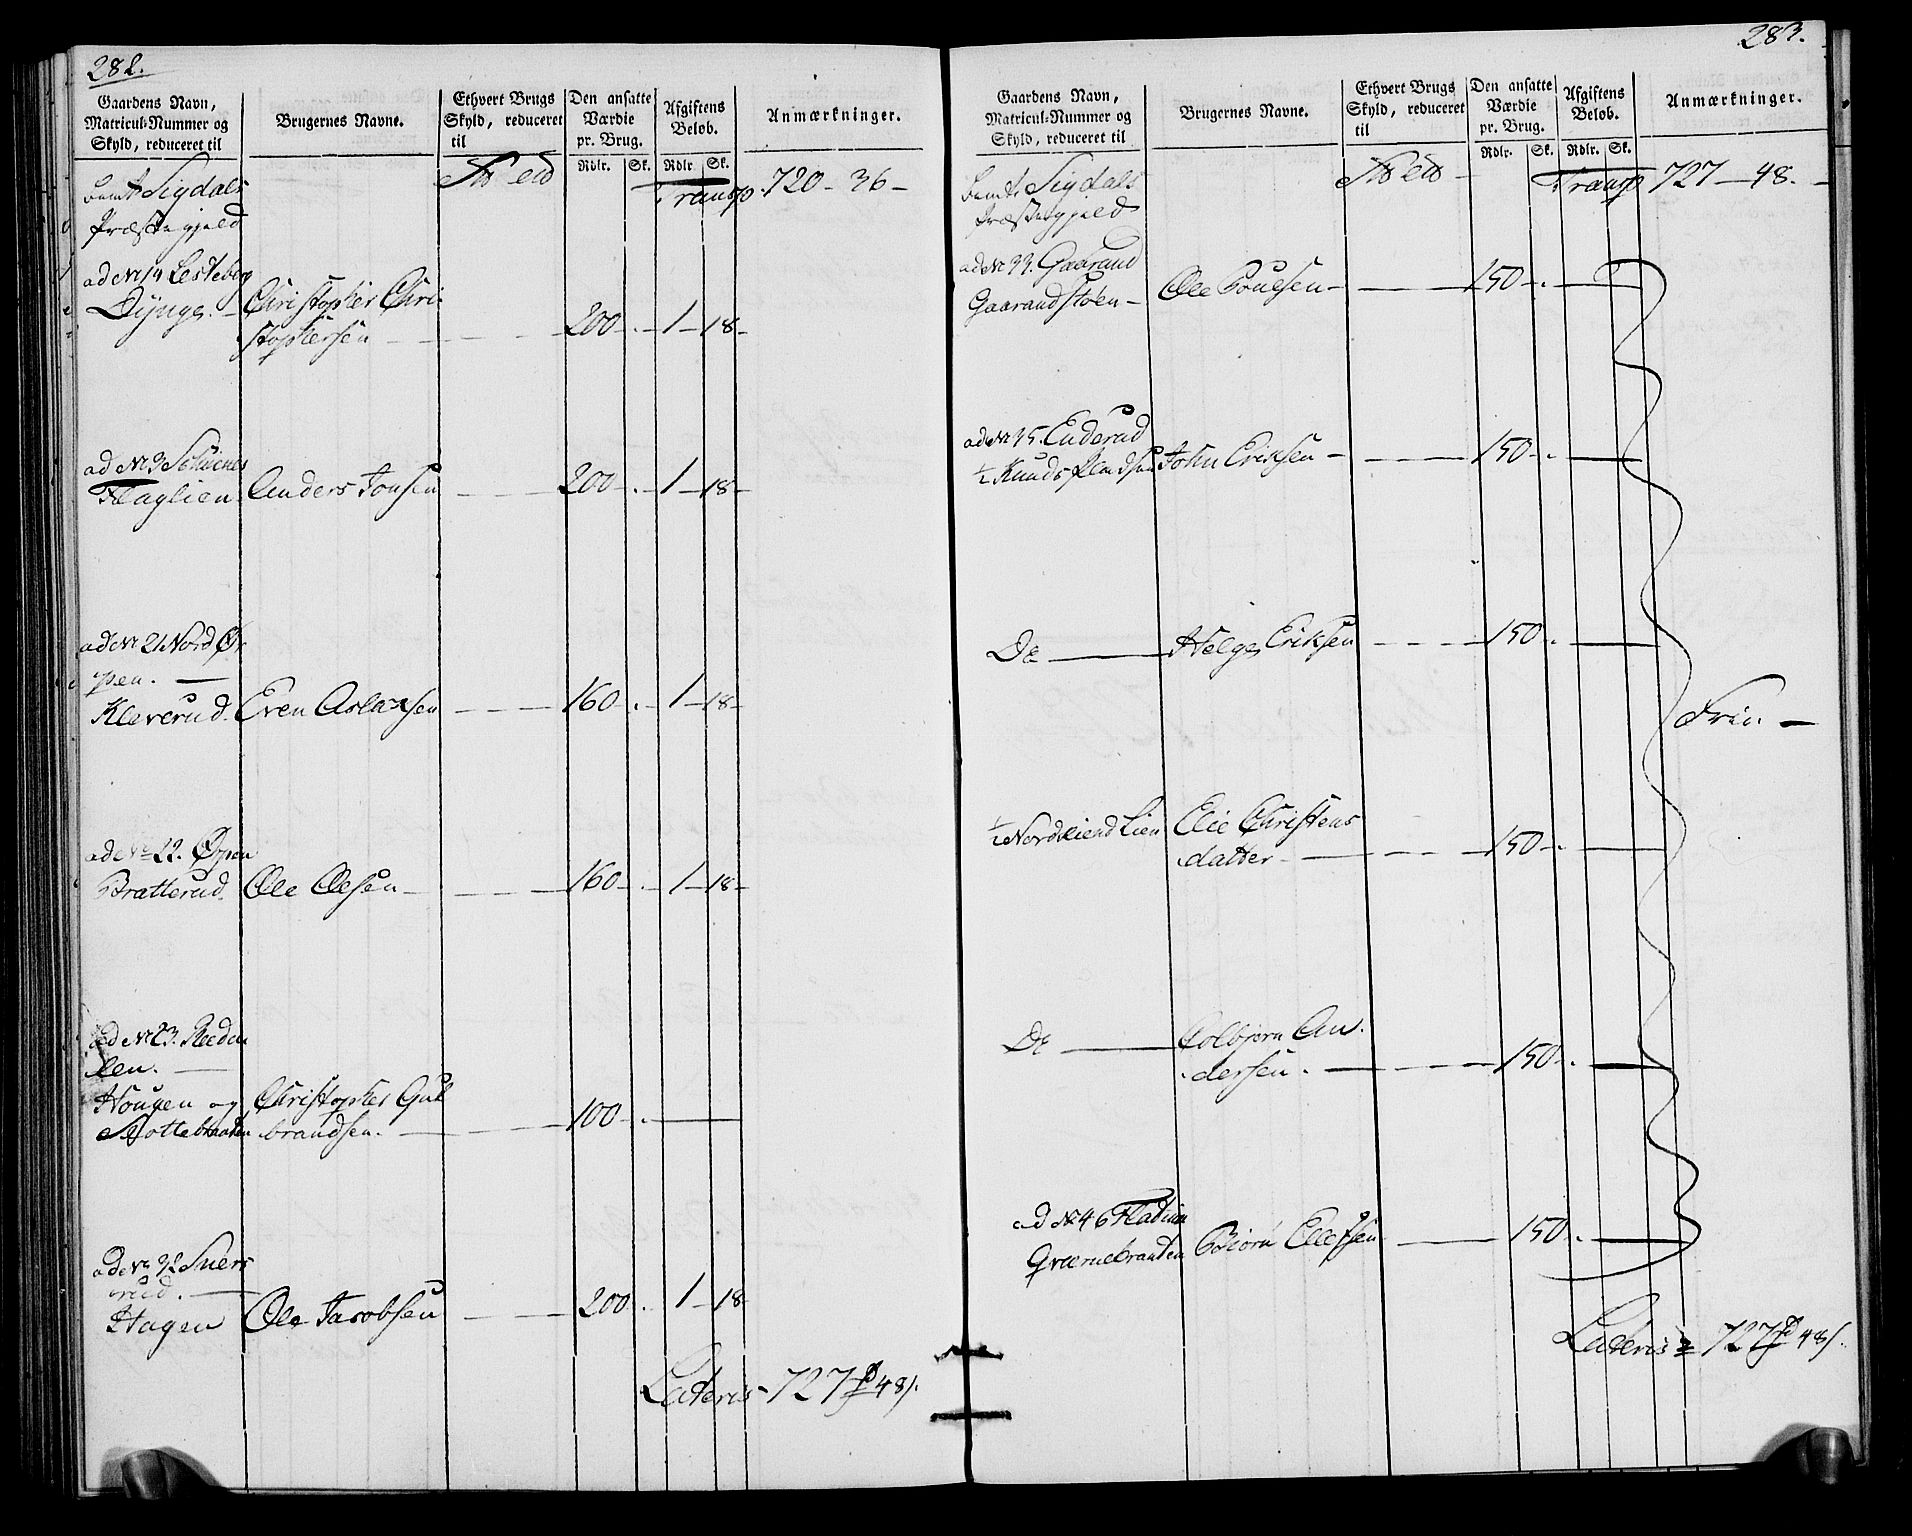 282.
Gaardens Navn, Matricul-Nummer og Skyld, reduceret til
Brugernes Navne.
Ethvert Brugs Skyld, reduceret til
Den ansatte Værdie pr. Brug.
Rdlr. Sk.
Afgiftens Beløb.
Rdlr. Sk.
Anmærkninger.
Sigdals
Transp 720 - 36 -
Præstegjeld
ad No 14 Lesteberg
Dynge. - Christopher Chri-
stophersen - - - 200 - . - 1 - 18 -
ad No 3
Haglien Anders Jonsen - - - 200 - . - 1 - 18 -
ad No 21 Nord Ør
pen. -
Kleverud. Even Aslaksen - - - 160 . - 1 - 18 -
ad No 22. Ørpen
Bratterud. Ole Olsen - - - 160 - . - 1 - 18 -
ad No 23.
len. -
Hougen og Christopher Gul
brandsen. - - - 100 - . -
ad No 32
rud. -
Hagen Ole Jacobsen - - 200 . 1 - 18 -
Lateris - 727 48 s.
283.
Gaardens Navn, Matricul-Nummer og Skyld, reduceret til
Brugernes Navne.
Ethvert Brugs Skyld, reduceret til
Den ansatte Værdie pr. Brug.
Rdlr. Sk.
Afgiftens Beløb.
Rdlr. Sk.
Anmærkninger.
Sigdals
Transp 727 - 48. -
Præstegjeld
ad No 33. Gaarand
Gaarandstøen - Ole Poulsen - - 150 - . -
ad No 35. Enderud
1/2 John Eriksen - - - 150 - . -
Do - Helge Eriksen - - - 150 . -
Frie. -
1/2 Lien Elie Christens
datter - - - 150 - . -
Do - Colbjørn An.
dersen. - - - 150 - . -
ad No 46
Qværnebraaten Biørn Ellefsen - - 150 - . -
Lateris = 727 48 s.